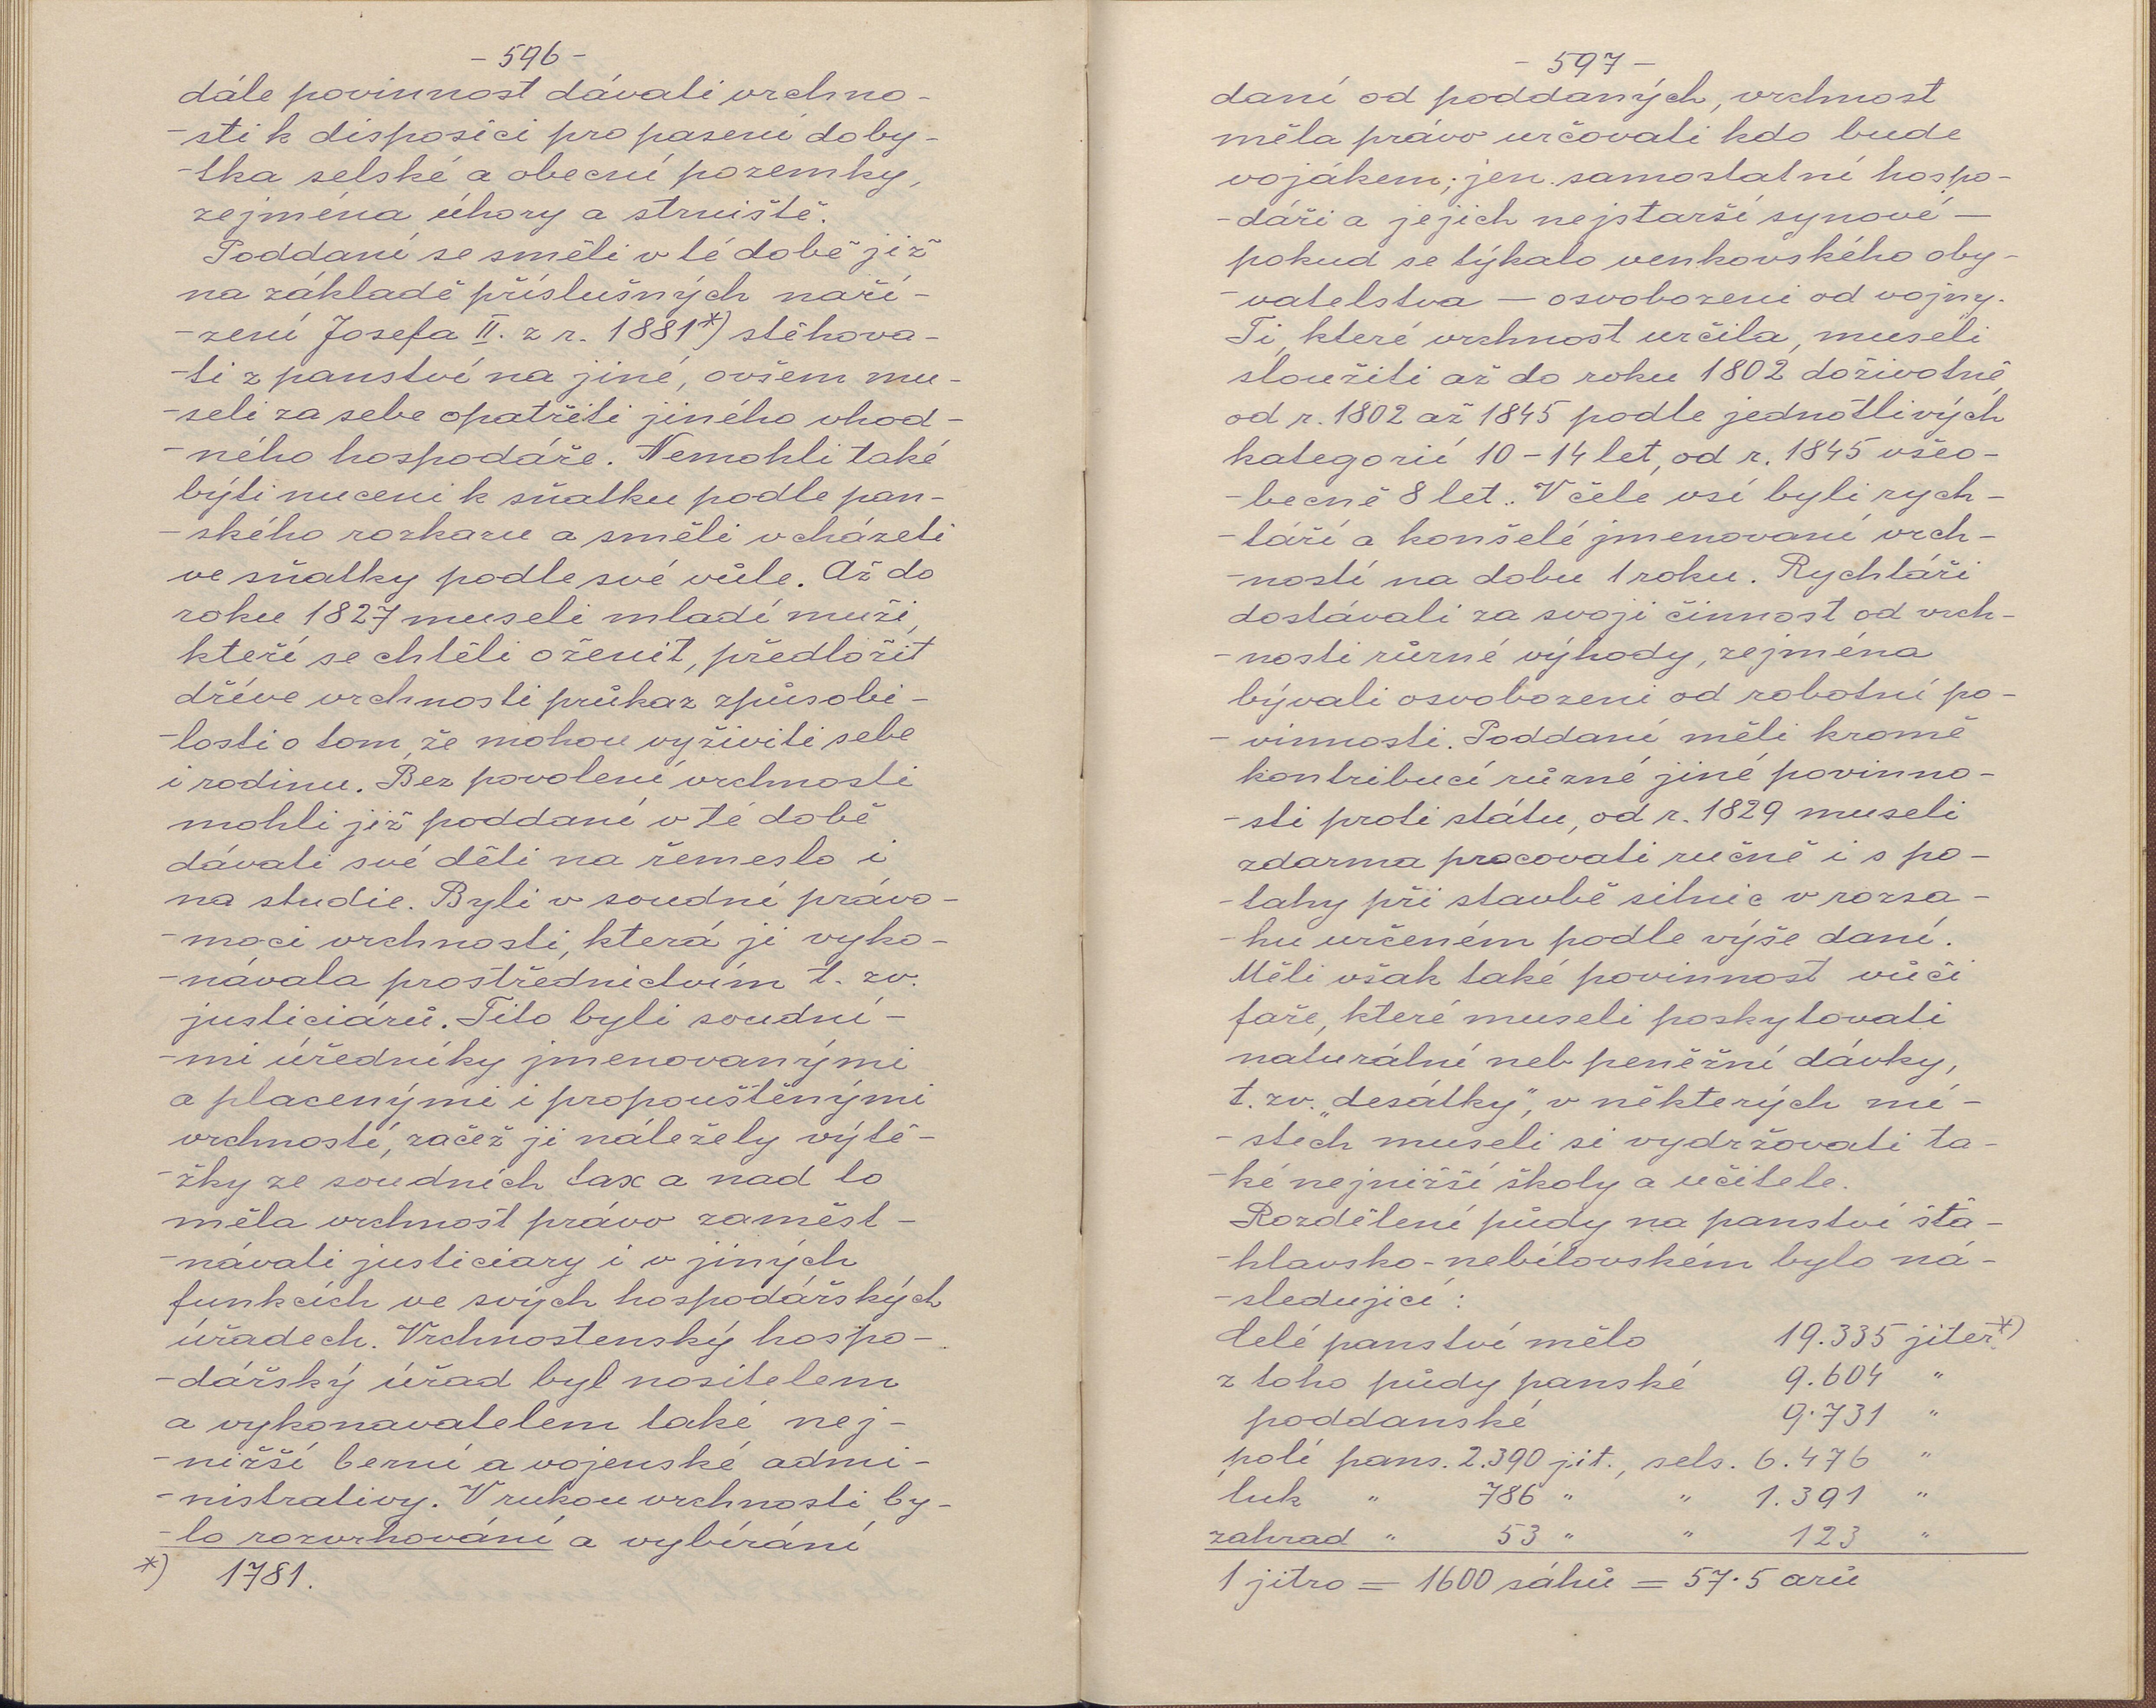 - 596 -
dále povinnost dávati vrchno-
-sti k disposici pro pasení doby-
-tka selské a obecní pozemky,
zejména úhory a strniště.
Poddaní se směli v té době již
na základě příslušných naří-
-zení Josefa II. z r. 1881*) stěhova-
-ti z panství na jiné, ovšem mu-
-seli za sebe opatřiti jiného vhod-
-ného hospodáře. Nemohli také
býti nuceni k sňatku podle pan-
-ského rozkazu a směli vcházeti
ve sňatky podle své vůle. Až do
roku 1827 museli mladí muži,
kteří se chtěli oženit, předložit
dříve vrchnosti průkaz způsobi-
-losti o tom, že mohou vyživiti sebe
i rodinu. Bez povolení vrchnosti
mohli již poddaní v té době
dávati své děti na řemeslo i
na studie. Byli v soudní právo-
-moci vrchnosti, která ji vyko-
-návala prostřednictvím t. zv.
justiciárů. Tito byli soudní-
-mi úředníky jmenovanými
a placenými i propouštěnými
vrchností, začež jí náležely výtě-
-žky ze soudních tax a nad to
měla vrchnost právo zaměst-
-návati justiciary i v jiných
funkcích ve svých hospodářských
úřadech. Vrchnostenský hospo-
-dářský úřad byl nositelem
a vykonavatelem také nej-
-nižší berní a vojenské admi-
-nistrativy. V rukou vrchnosti by-
-lo rozvrhování a vybírání
*) 1781.
- 597 -
daní od poddaných, vrchnost
měla právo určovati kdo bude
vojákem; jen samostatní hospo-
-dáři a jejich nejstarší synové —
pokud se týkalo venkovského oby-
-vatelstva — osvobozeni od vojny.
Ti, které vrchnost určila, museli
sloužiti až do roku 1802 doživotně,
od r. 1802 až 1845 podle jednotlivých
kategorií 10 - 14 let, od r. 1845 všeo-
-becně 8 let. V čele vsí byli rych-
-táři a konšelé jmenovaní vrch-
-ností na dobu 1 roku. Rychtáři
dostávali za svoji činnost od vrch-
-nosti různé výhody, zejména
bývali osvobozeni od robotní po-
-vinnosti. Poddaní měli kromě
kontribucí různé jiné povinno-
-sti proti státu, od r. 1829 museli
zdarma pracovati ručně i s po-
-tahy při stavbě silnic v rozsa-
-hu určeném podle výše daní.
Měli však také povinnost vůči
faře, které museli poskytovati
naturální neb peněžní dávky,
t. zv. „desátky", v některých mí-
-stech museli si vydržovati ta-
-ké nejnižší školy a učitele.
Rozdělení půdy na panství šťá-
-hlavsko-nebílovském bylo ná-
-sledující:
Celé panství mělo 19.335 jiter*)
z toho půdy panské 9.604 "
poddanské 9.731 "
polí pans. 2.390 jit., sels. 6.476 "
luk " 786 " " 1.391 "
zahrad " 53 " " 123 "
1 jitro = 1600 sáhů = 57.5 arů